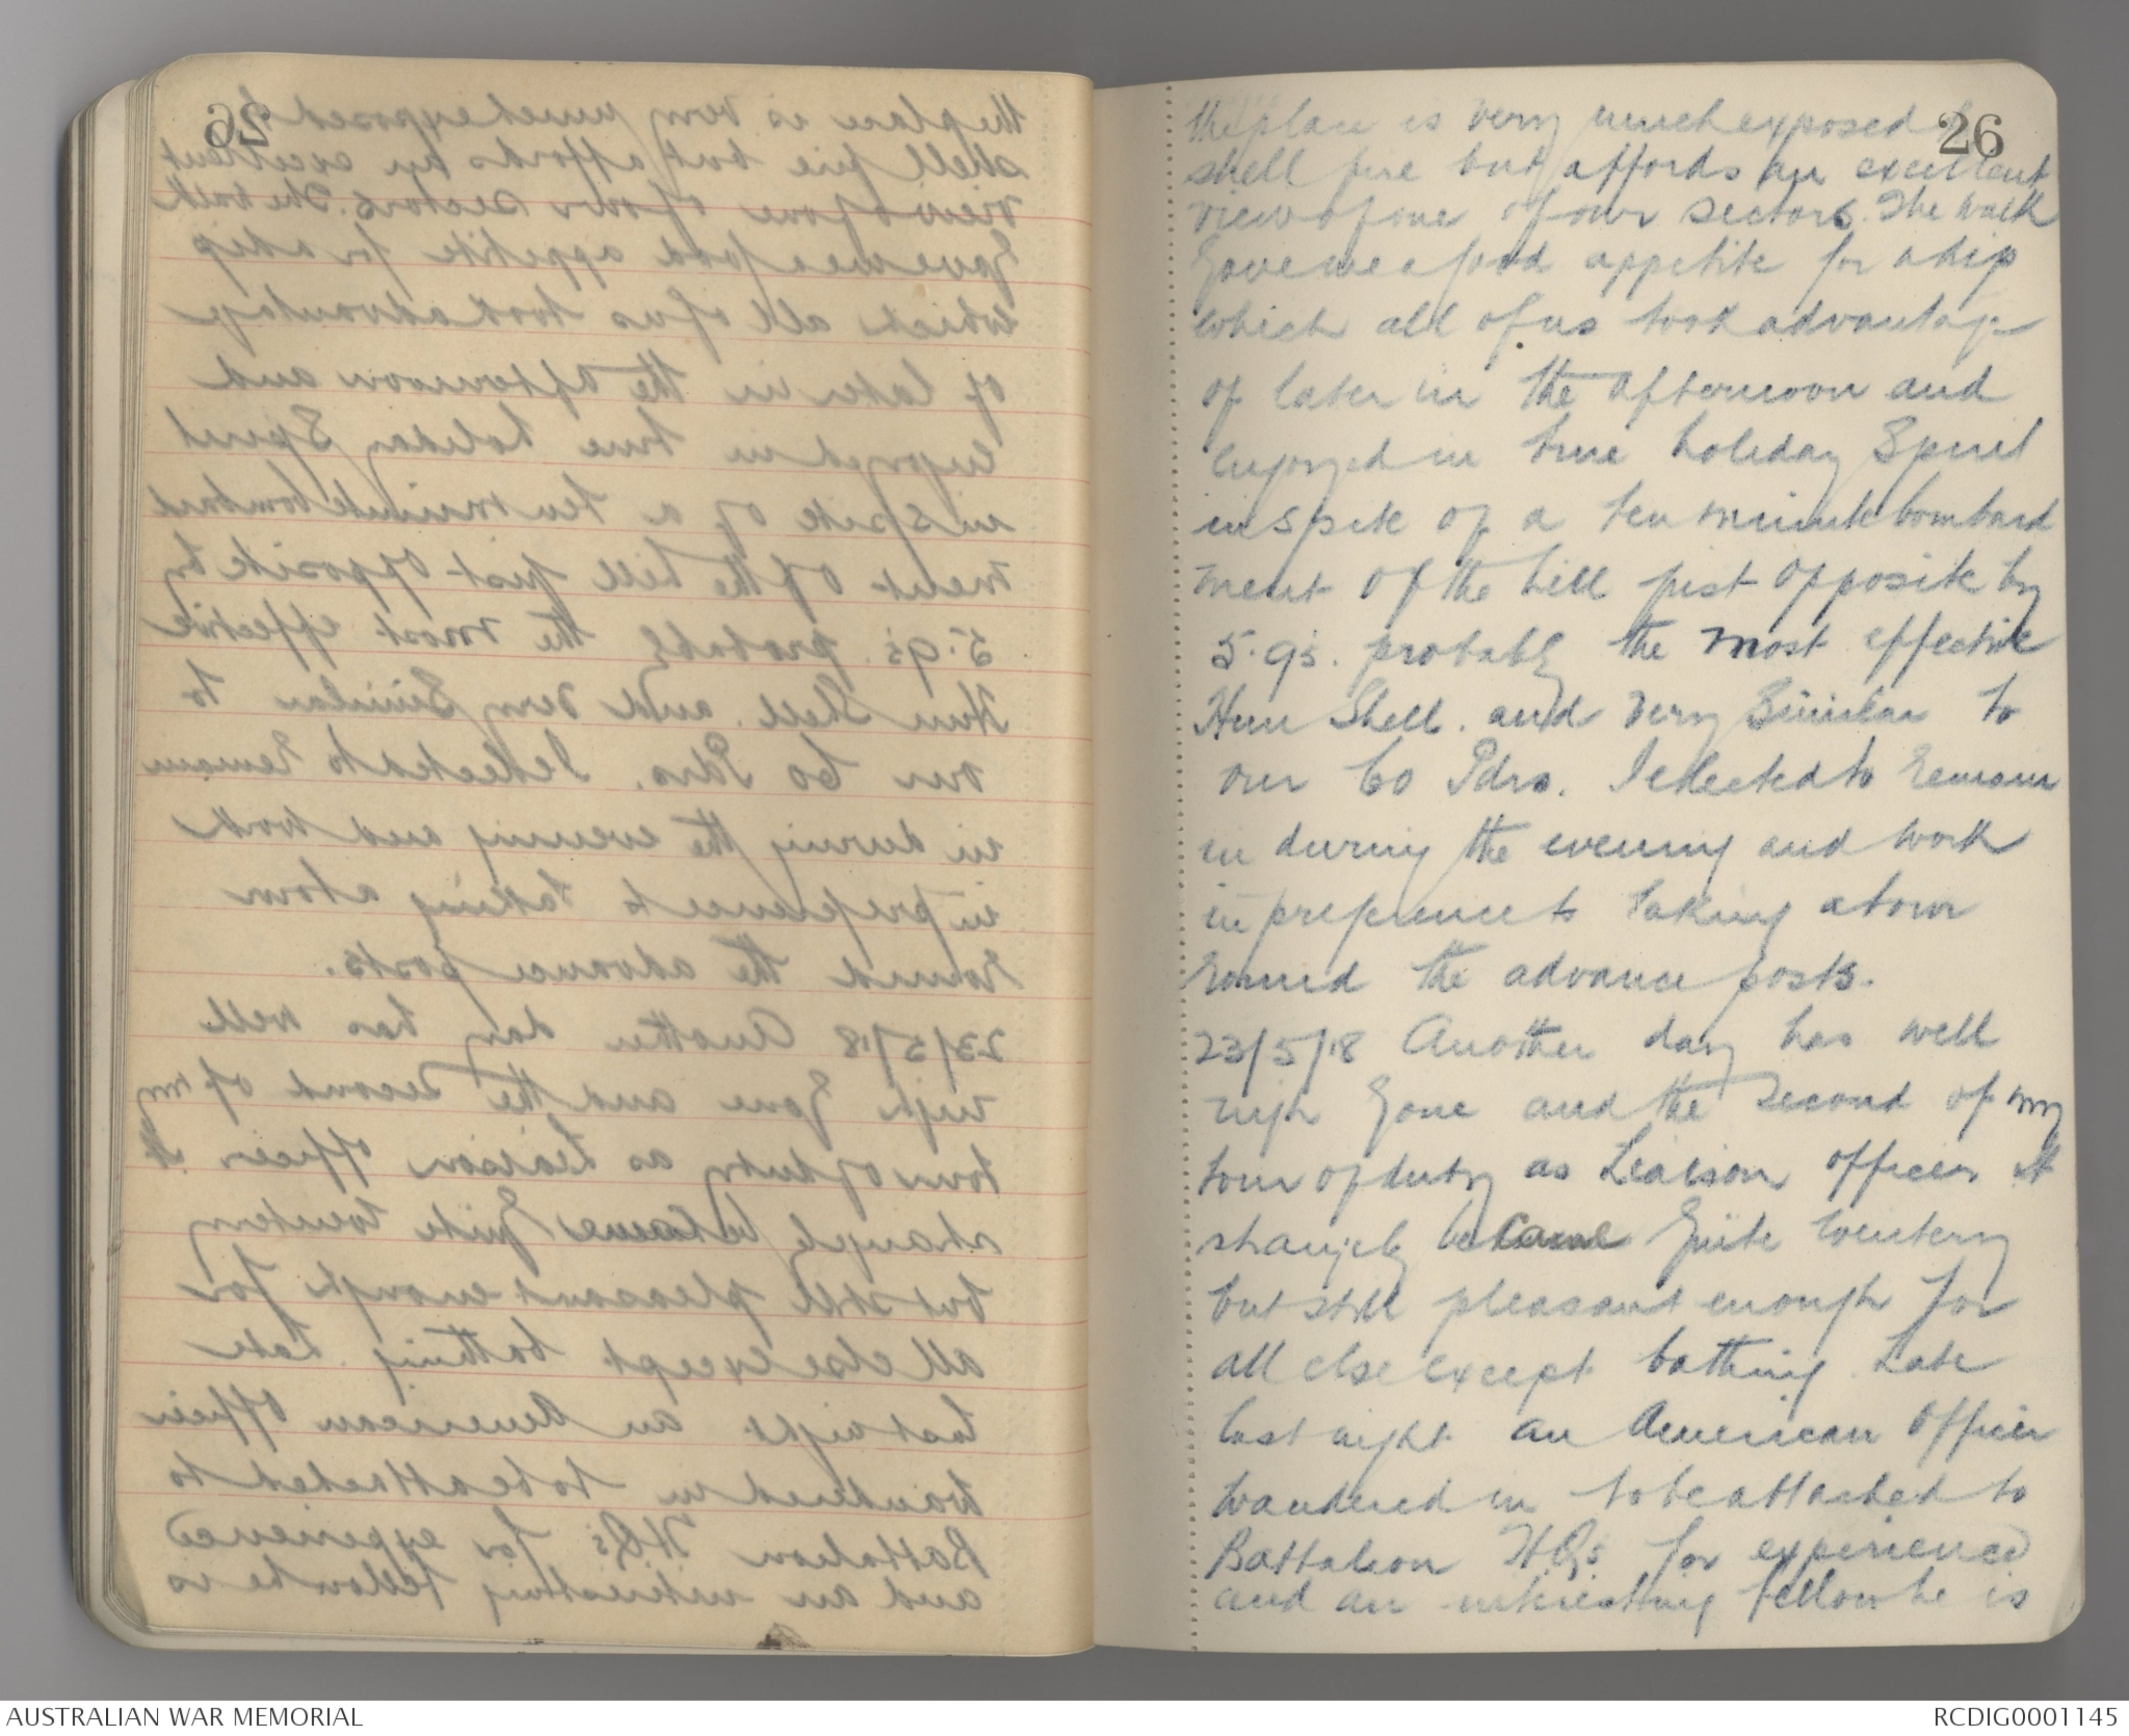 26
the place is very much exposed to
shell fire but affords an excellent
view of one of our sectors. The walk
gave me a good appetite for a dip
which all of us took advantage
of later in the afternoon and
enjoyed in true holiday Spirit
in spite of a ten minute bombard
ment of the hill just opposite by
5.9's. probably the most effective
Hun Shell. and very Similar to
our 60 Pdrs. I elected to remain
in during the evening and work
in preference to taking a tour
round the advance posts.
23/5/18 Another day has well
nigh gone and the second of my
tour of duty as Liaison officer. It
strangely became quite wintery
but still pleasant enough for
all else except bathing. Late
last night an American officer
wandered in to be attached to
Battalion HQs for experience
and an interesting fellow he is
AUSTRALIAN WAR MEMORIAL
RCDIG0001145